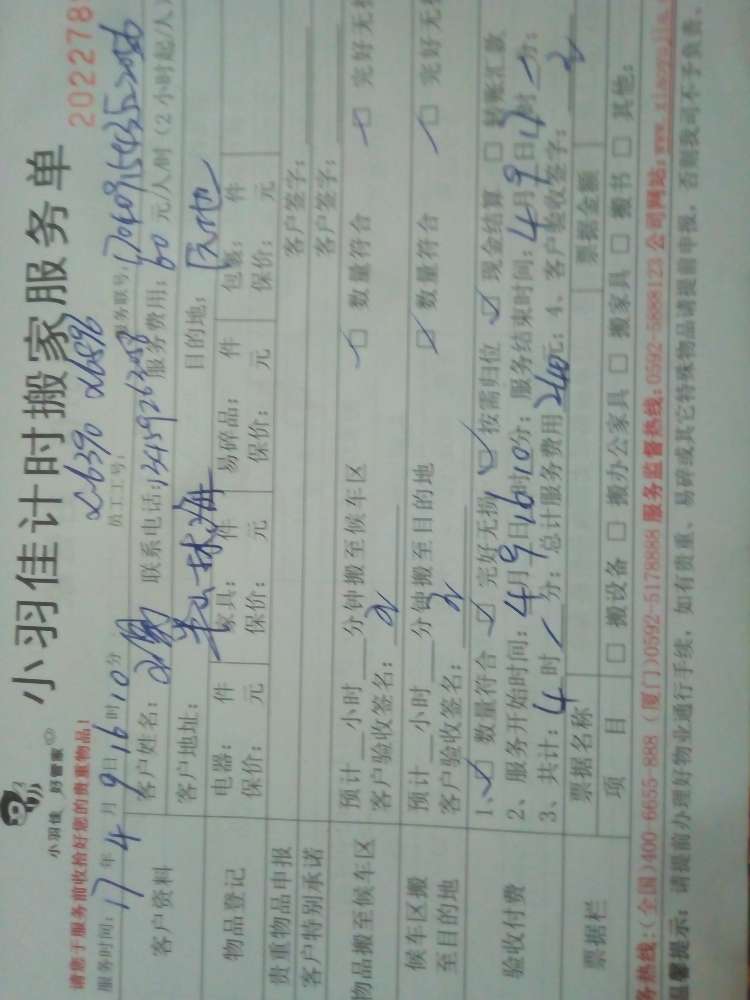 小羽佳 好管家
小羽佳计时搬家服务单
2022789
请您于服务前收拾好您的贵重物品!
员工工号: 2639 2659 服务联号: 1704091543522056
服务时间: 17 年 4 月 9 日 16 时 10 分
客户资料
客户姓名: 联系电话: 13459263058 服务费用: 60 元/人/时 (2小时起/人)
客户地址: 半山林海 目的地: 原地
物品登记
电器: 件 家具: 件 易碎品: 件 包裹: 件
保价: 元 保价: 元 保价: 元 保价: 元
贵重物品申报 客户签字:
客户特别承诺 客户签字:
物品搬至候车区
预计__小时__分钟搬至候车区 ☑ 数量符合 ☑ 完好无损
客户验收签名:
候车区搬至目的地
预计__小时__分钟搬至目的地 ☑ 数量符合 ☑ 完好无损
客户验收签名:
验收付费
1、☑ 数量符合 ☑ 完好无损 ☑ 按需归位 ☑ 现金结算 □ 转账汇款
2、服务开始时间: 4月9日16时10分; 服务结束时间: 4月9日 时 分;
3、共计: 4 时 / 分; 总计服务费用 240 元; 4、客户验收签字:
票据栏
票据名称 票据金额
项目 □ 搬设备 □ 搬办公家具 □ 搬家具 □ 搬书 □ 其他:
务热线:(全国)400-6655-888 (厦门)0592-5178888 服务监督热线:0592-5888123 公司网站:www.xiaoyujia.
温馨提示: 请提前办理好物业通行手续, 如有贵重、易碎或其它特殊物品请提前申报, 否则我司不予负责。